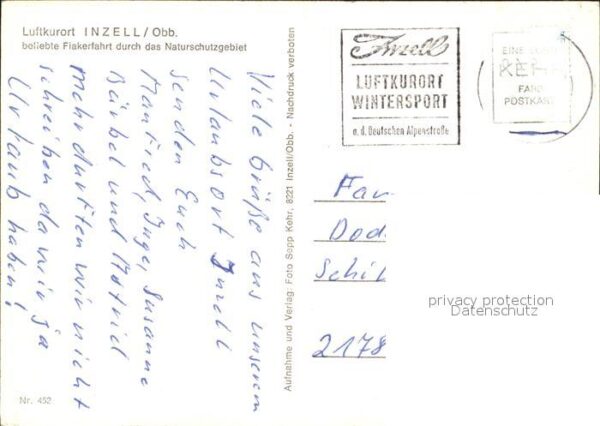 Luftkurort INZELL/Obb.
beliebte Fiakerfahrt durch das Naturschutzgebiet
Viele Grüße aus unserem
Urlaubsort Inzell
senden Euch
Manfred, Inge, Susanne
Bärbel und Astrid
mehr durften wir nicht
schreiben da wir ja
Urlaub haben!
Nr. 452
Aufnahme und Verlag: Foto Sepp Kehr, 8221 Inzell/Obb. - Nachdruck verboten
Inzell
LUFTKURORT
WINTERSPORT
a. d. Deutschen Alpenstraße
EINE
KEHR
FARB
POSTKARTE
Fam
Dod
Schil
2178
privacy protection
Datenschutz